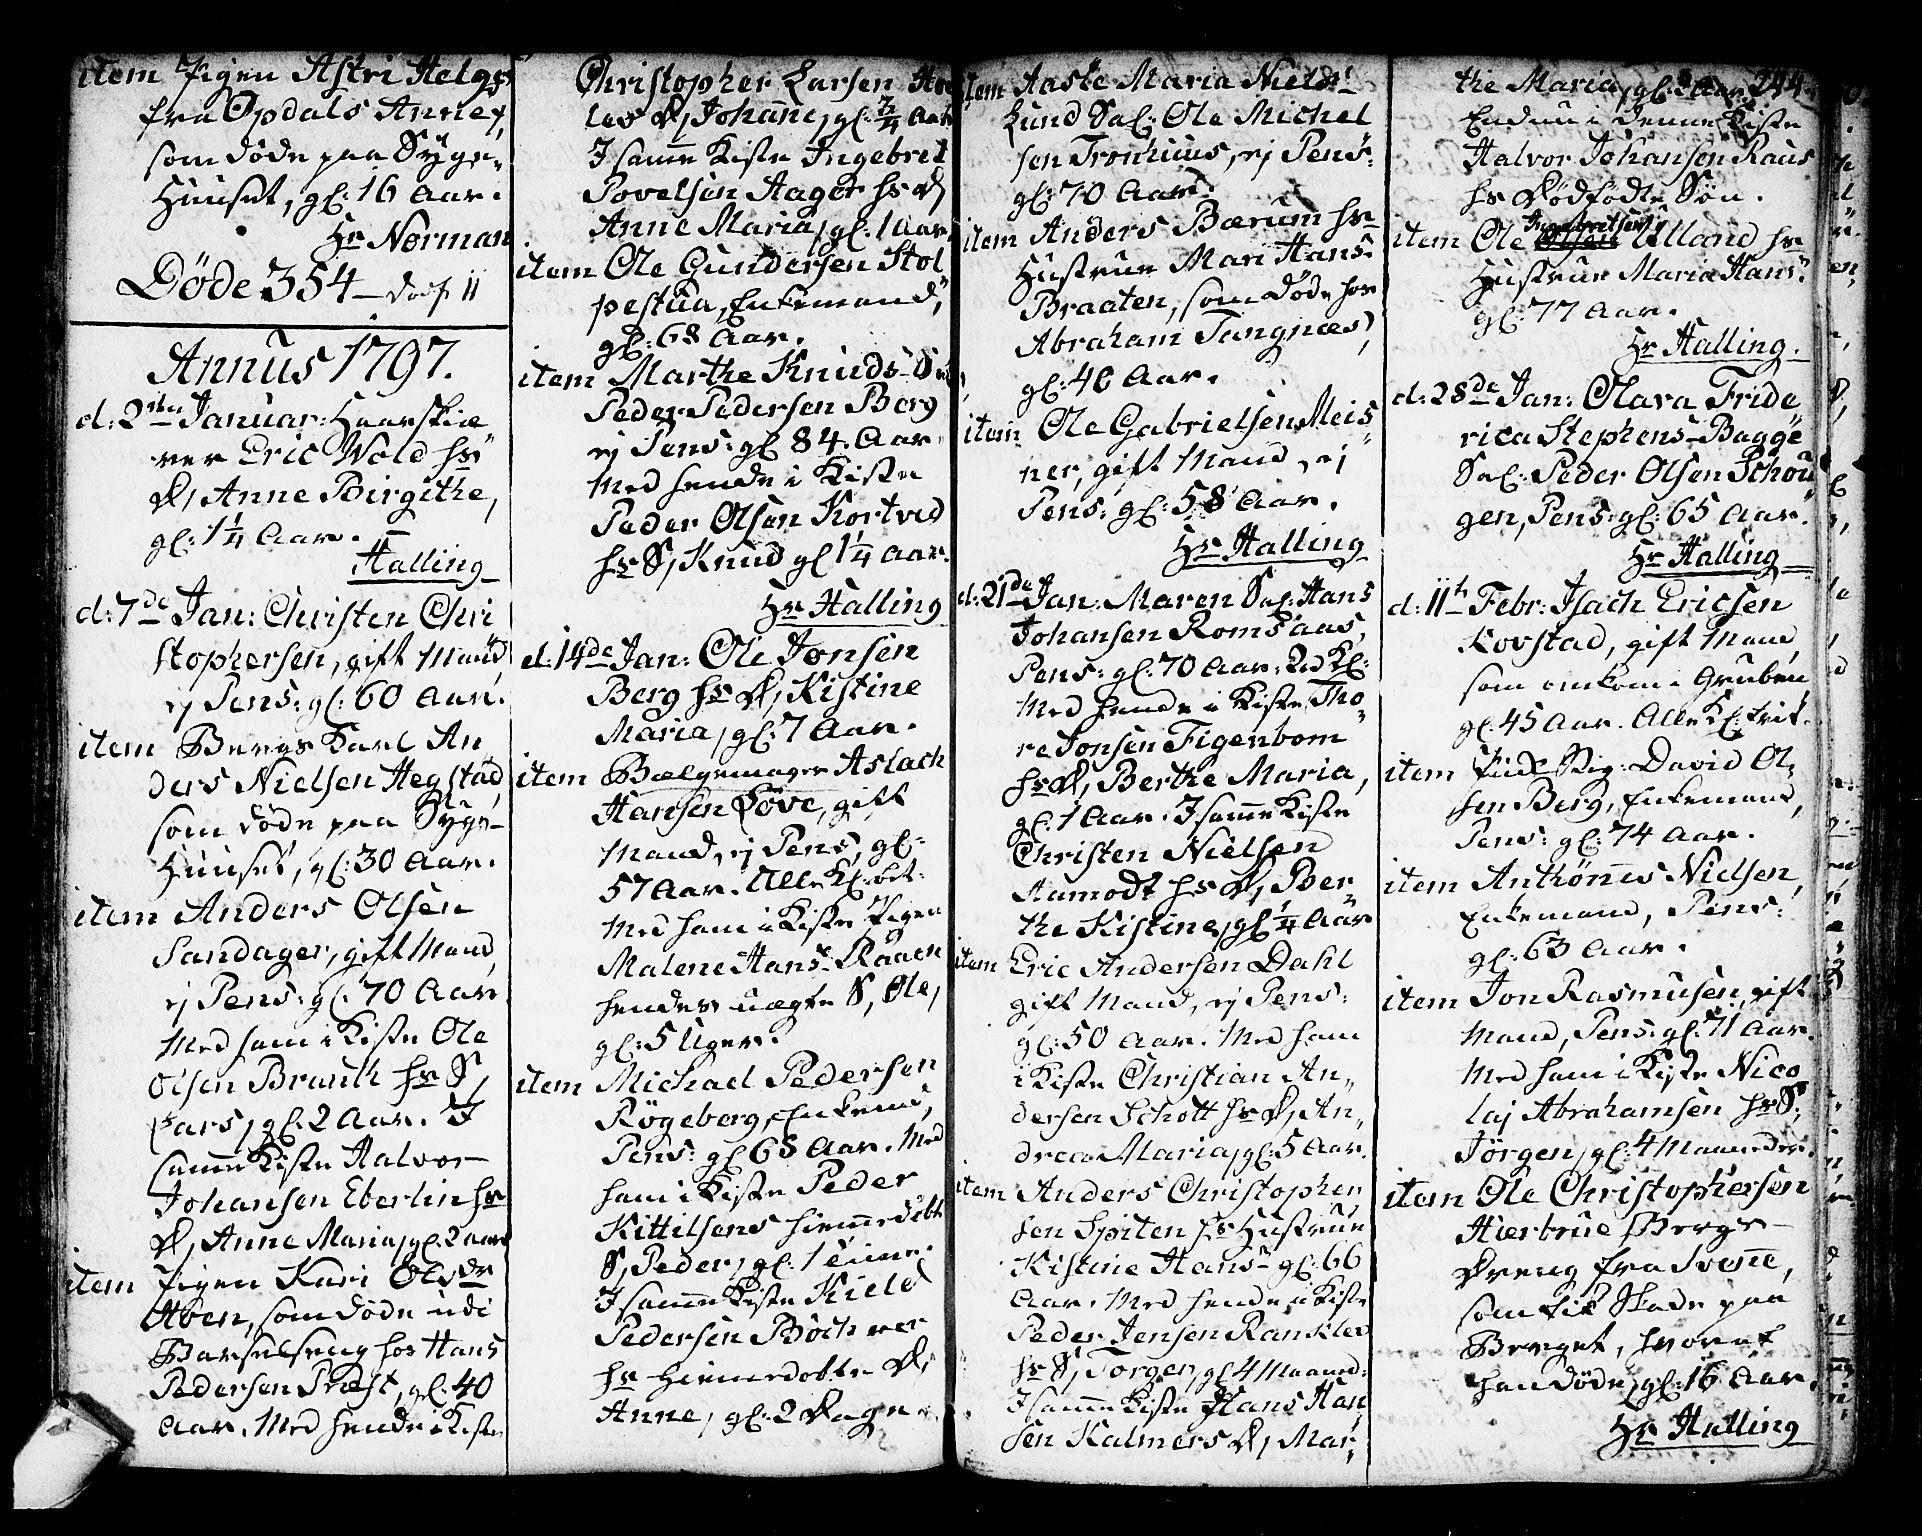 item Pigen Astri Helgs
fra Opdals Annex,
som døde paa Syge-
Huuset, gl: 16 Aar.
Hr Norman
Døde 354 — dødf 11
Annus 1797.
d: 2den Januar: Haarskiæ
rer Eric Wold hs
D, Anne Birgithe,
gl: 1 1/4 Aar.
Halling
d: 7de Jan: Christen Chri
stophersen, gift Mand,
ej Pens: gl: 60 Aar.
item Bergs Karl An
ders Nielsen Hegstad,
som døde paa Syge-
Huuset, gl: 30 Aar.
item Anders Olsen
Sandager, gift Mand,
ej Pens: gl: 70 Aar
Med ham i Kiste Ole
Olsen Brauk hs S,
Lars, gl: 2 Aar. I
samme Kiste Halvor
Johansen Eberlin hs
D, Anne Maria, gl: 2 aar
item Pigen Kari Olsdr
Aben, som døde udi
Barselseng hos Hans
Pedersen Præst, gl: 40
Aar. Med hende i Kiste
Christopher Larsen
les D, Johanne, gl: 3/4 Aar
I samme Kiste Ingebret
Povelsen Hager hs D,
Anne Maria, gl: 1 Aar,
item Ole Gundersen Stol
pestua, Enkemand,
gl: 68 Aar.
item Marthe Knuds-
Peder Pedersen Berg
ej Pens: gl 84 Aar
Med hende i Kiste
Peder Olsen Kortved
hs S, Knud gl 1 1/4 Aar.
Hr Halling
d: 14de Jan: Ole Jonsen
Berg hs D, Kistine
Maria, gl: 7 Aar.
item Bælgemager Aslach
Hansen Løve, gift
Mand, ej Pens, gl:
57 Aar. Alle Kl: bet:
Med ham i Kiste Pigen
Malene Hans: Raaen
hendes uægte S, Ole,
gl: 5 Uger.
item Michael Pedersen
Røgeberg, Enkemd,
Pens: gl 68 Aar. Med
ham i Kiste Peder
Kittilsens hiemmedøbte
S, Peder, gl: 1 time.
I samme Kiste Kield
Pedersen Bøch
hs hiemmedøbte D,
Anne, gl: 2 Dage.
item Aaste Maria Niels:
Lund Sal: Ole Michel
sen Tronhuus, ej Pens:
gl: 70 Aar.
item Anders Bærum hs
Hustrue Mari Hans:
Braaten, som døde hos
Abraham Tangnæs,
gl: 40 Aar.
item Ole Gabrielsen Meis
ner, gift Mand, ej
Pens: gl: 58 Aar.
Hr Halling
d: 21de Jan: Maren Sal: Hans
Johansen Romsaas,
Pens: gl: 70 Aar. 2d Kl:
Med hende i Kiste Tho
re Jonsen Figenbom
hs D, Berthe Maria,
gl: 1 Aar. I samme Kiste
Christen Nielsen
Aamodt hs D, Ber
the Kistine, gl 1/4 Aar
item Eric Andersen Dahl
gift Mand, ej Pens:
gl: 50 Aar. Med ham
i Kiste Christian An
dersen Schott hs D, An
drea Maria, gl: 5 Aar.
item Anders Christophen
sen Spiten hs Hustrue
Kistine Hans- gl: 66
Aar. Med hende i Kiste
Peder Jensen Ranklev
hs S, Torger, gl 4 Maaned:
I samme Kiste Hans Han
sen Kalmers D, Mar
the Maria, gl: Aar. 244.
Endnu i denne Kiste
Halvor Johansen Raus
hs Dødfødte Søn.
item Ole Ingebretsen Ulland hs
Hustrue Maria Hans:
gl: 77 Aar.
Hr Halling.
d: 28de Jan: Olava Fride
rica Stephens-Bagge
Sal: Peder Olsen Schou
gen, Pens: gl: 65 Aar.
Hr Halling
d: 11te Febr: Isach Ericsen
Kovstad, gift Mand,
som omkom i Gruben
gl: 45 Aar. Alle Kl: frit.
item David Ol
sen Berg, Enkemand,
Pens: gl: 74 Aar.
item Anthønnes Nielsen,
Enkemand, Pens:
gl: 63 Aar.
item Jon Rasmusen, gift
Mand, Pens: gl: 71 Aar.
Med ham i Kiste Nico
laj Abrahamsen hs S,
Jørgen, gl: 4 Maaneder.
item Ole Christophersen
Hiertrue Bergs-
Dreng fra Svenne,
som fik Skade paa
Berget, hvoraf
han døde, gl: 16 Aar.
Hr Halling